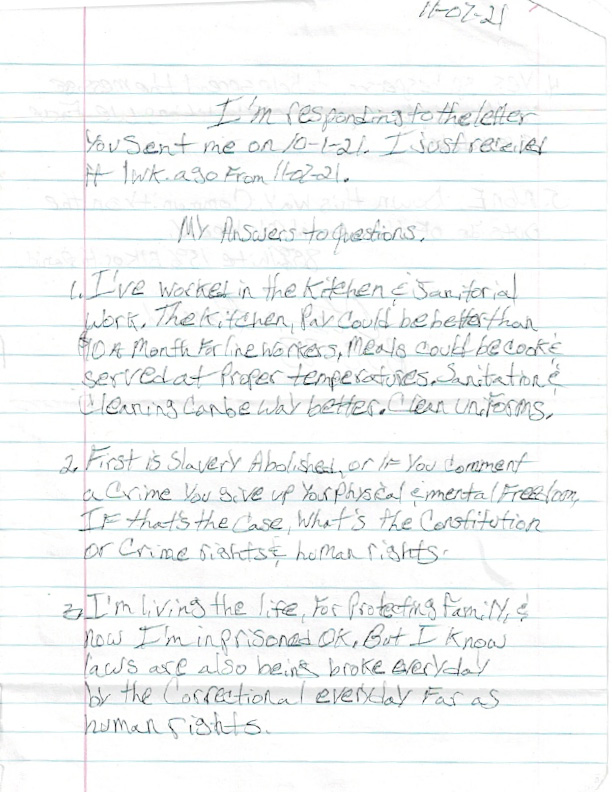 11-07-21
I'm responding to the letter
You Sent me on 10-1-21. I just receiver
it 1wk. ago From 11-07-21.
My Answers to questions.
1. I've worked in the Kitchen & Janitorial
Work. The Kitchen, Pay Could be better than
$10 A Month For line workers, Meals could be cook &
served at Proper temperatures. Sanitation &
Cleaning Can be way better. Clean uniforms.
2. First is Slavery Abolished, or IF You Comment
a Crime You give up Your physical & mental Freedom,
IF that's the Case, What's the Constitution
or Crime rights & human rights.
3. I'm living the life, For Protecting Family, &
now I'm inprisoned OK, But I Know
laws are also being broke everyday
by the Correctional everyday Far as
human rights.